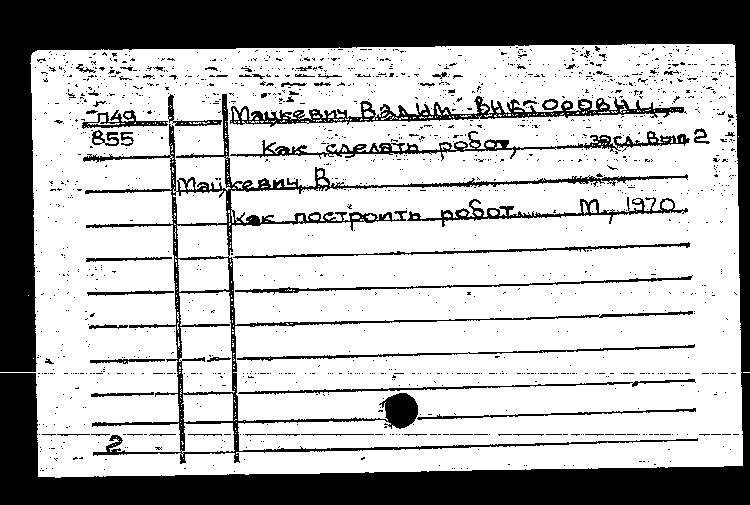 П49 Мацкевич Вадим Викторович
855 Как сделать робот, Вып 2
Мацкевич, В.
Как построить робот М., 1970
2